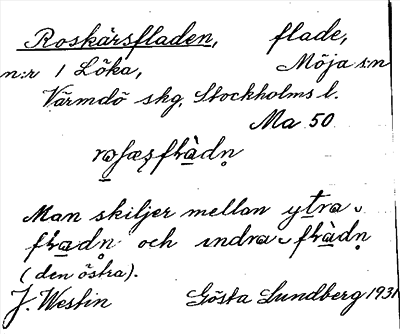 Roskärsfladen, flade,
n:r 1 Löka, Möja s:n
Värmdö skg, Stockholms l.
Ma 50
Man skiljer mellan ytra
och indra
(den östra).
J. Westin Gösta Lundberg 1931